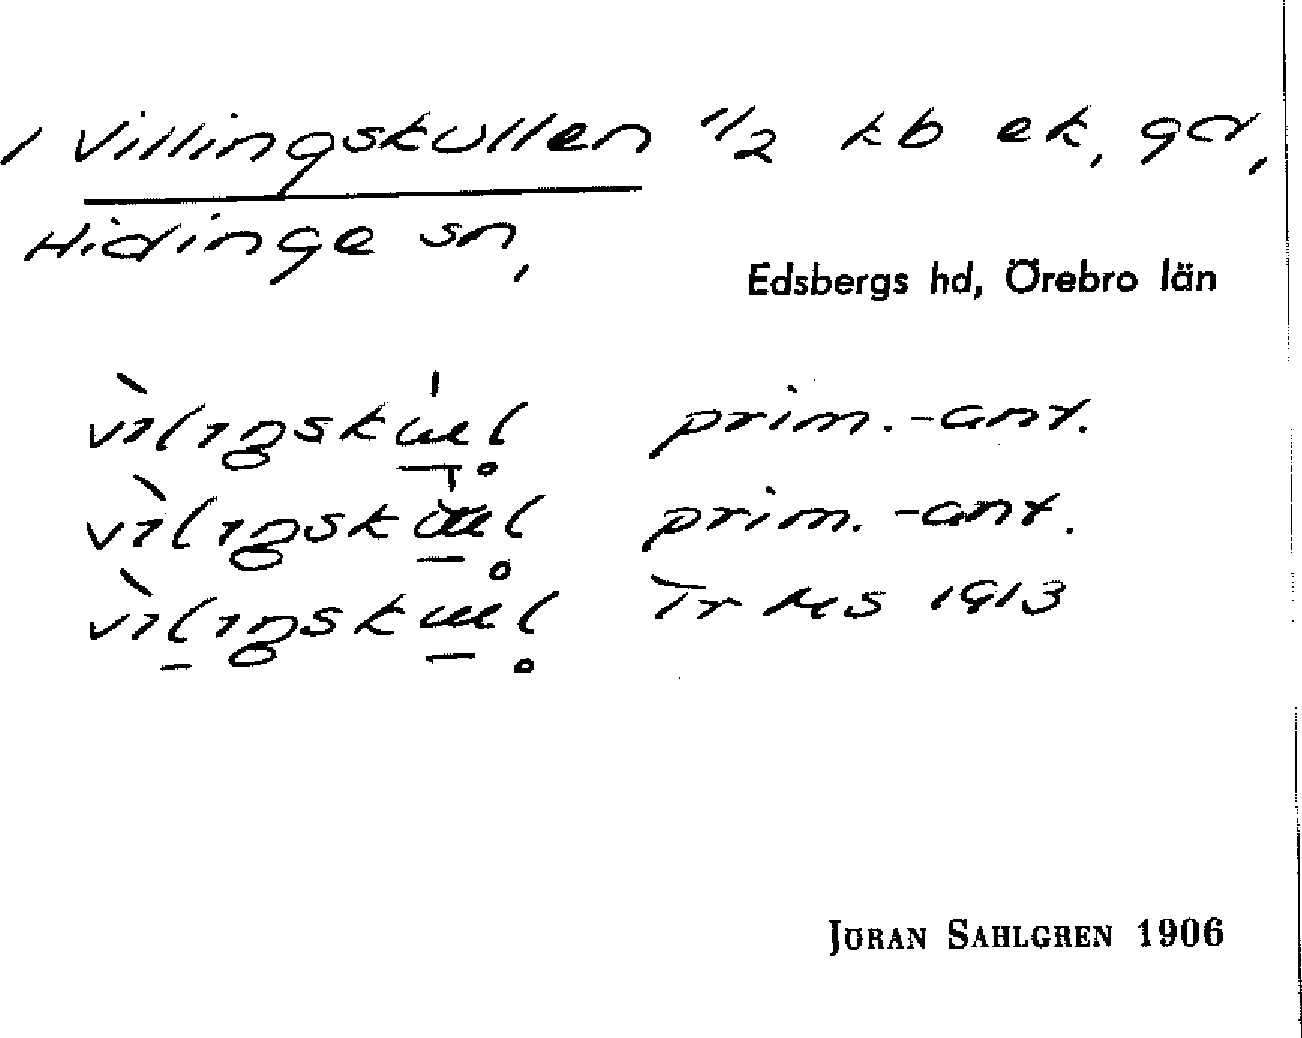 / Villingskullen 1/2 kb ek, gd,
Hidinge sn,
Edsbergs hd, Örebro län
prim.-ant.
prim.-ant.
Tr MS 1913
JÖRAN SAHLGREN 1906